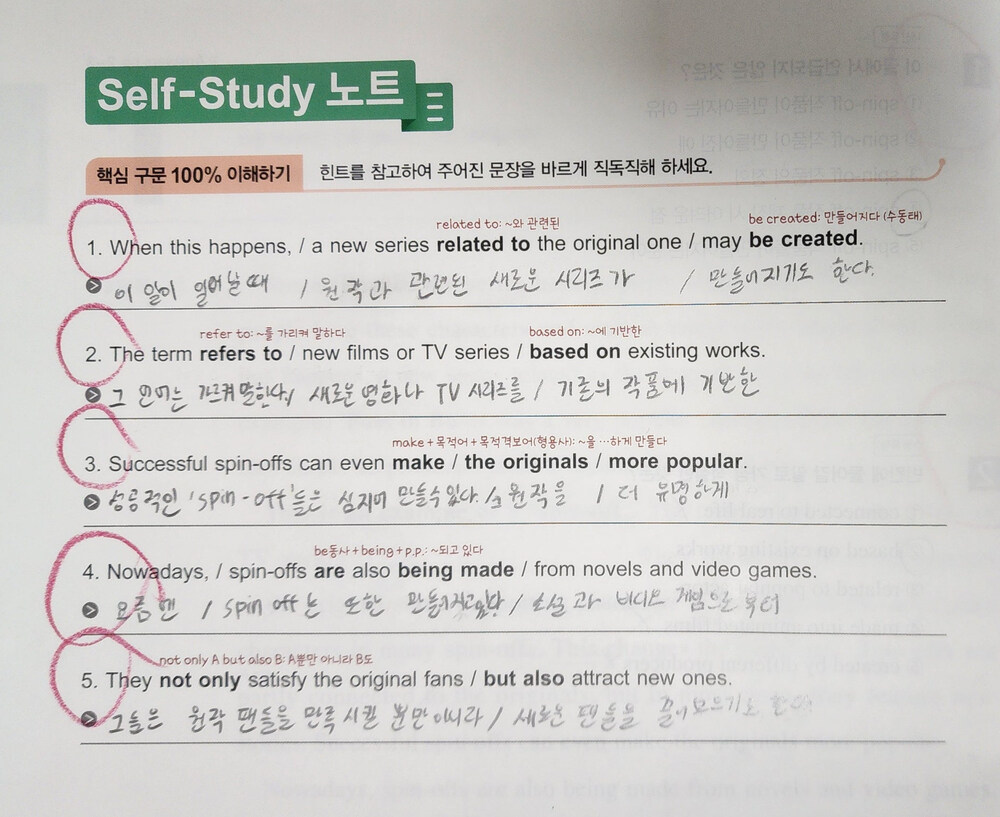 Self-Study 노트
핵심 구문 100% 이해하기 힌트를 참고하여 주어진 문장을 바르게 직독직해 하세요.
related to: ~와 관련된 be created: 만들어지다 (수동태)
1. When this happens, / a new series related to the original one / may be created.
이 일이 일어날 때 / 원작과 관련된 새로운 시리즈가 / 만들어지기도 한다.
refer to: ~를 가리켜 말하다 based on: ~에 기반한
2. The term refers to / new films or TV series / based on existing works.
그 언어는 가르켜 말한다/ 새로운 영화나 TV 시리즈를 / 기존의 작품에 기반한
make+목적어+목적격보어(형용사): ~을 …하게 만들다
3. Successful spin-offs can even make / the originals / more popular.
성공적인 'spin-off'들은 심지어 만들수있다. / 원작을 / 더 유명하게
be동사+being+p.p.: ~되고 있다
4. Nowadays, / spin-offs are also being made / from novels and video games.
요즘엔 / spin off는 또한 만들어지고있다 / 소설과 비디오 게임으로부터
not only A but also B: A뿐만 아니라 B도
5. They not only satisfy the original fans / but also attract new ones.
그들은 원작 팬들을 만족시킬 뿐만아니라 / 새로운 팬들을 끌어모으기도 한다